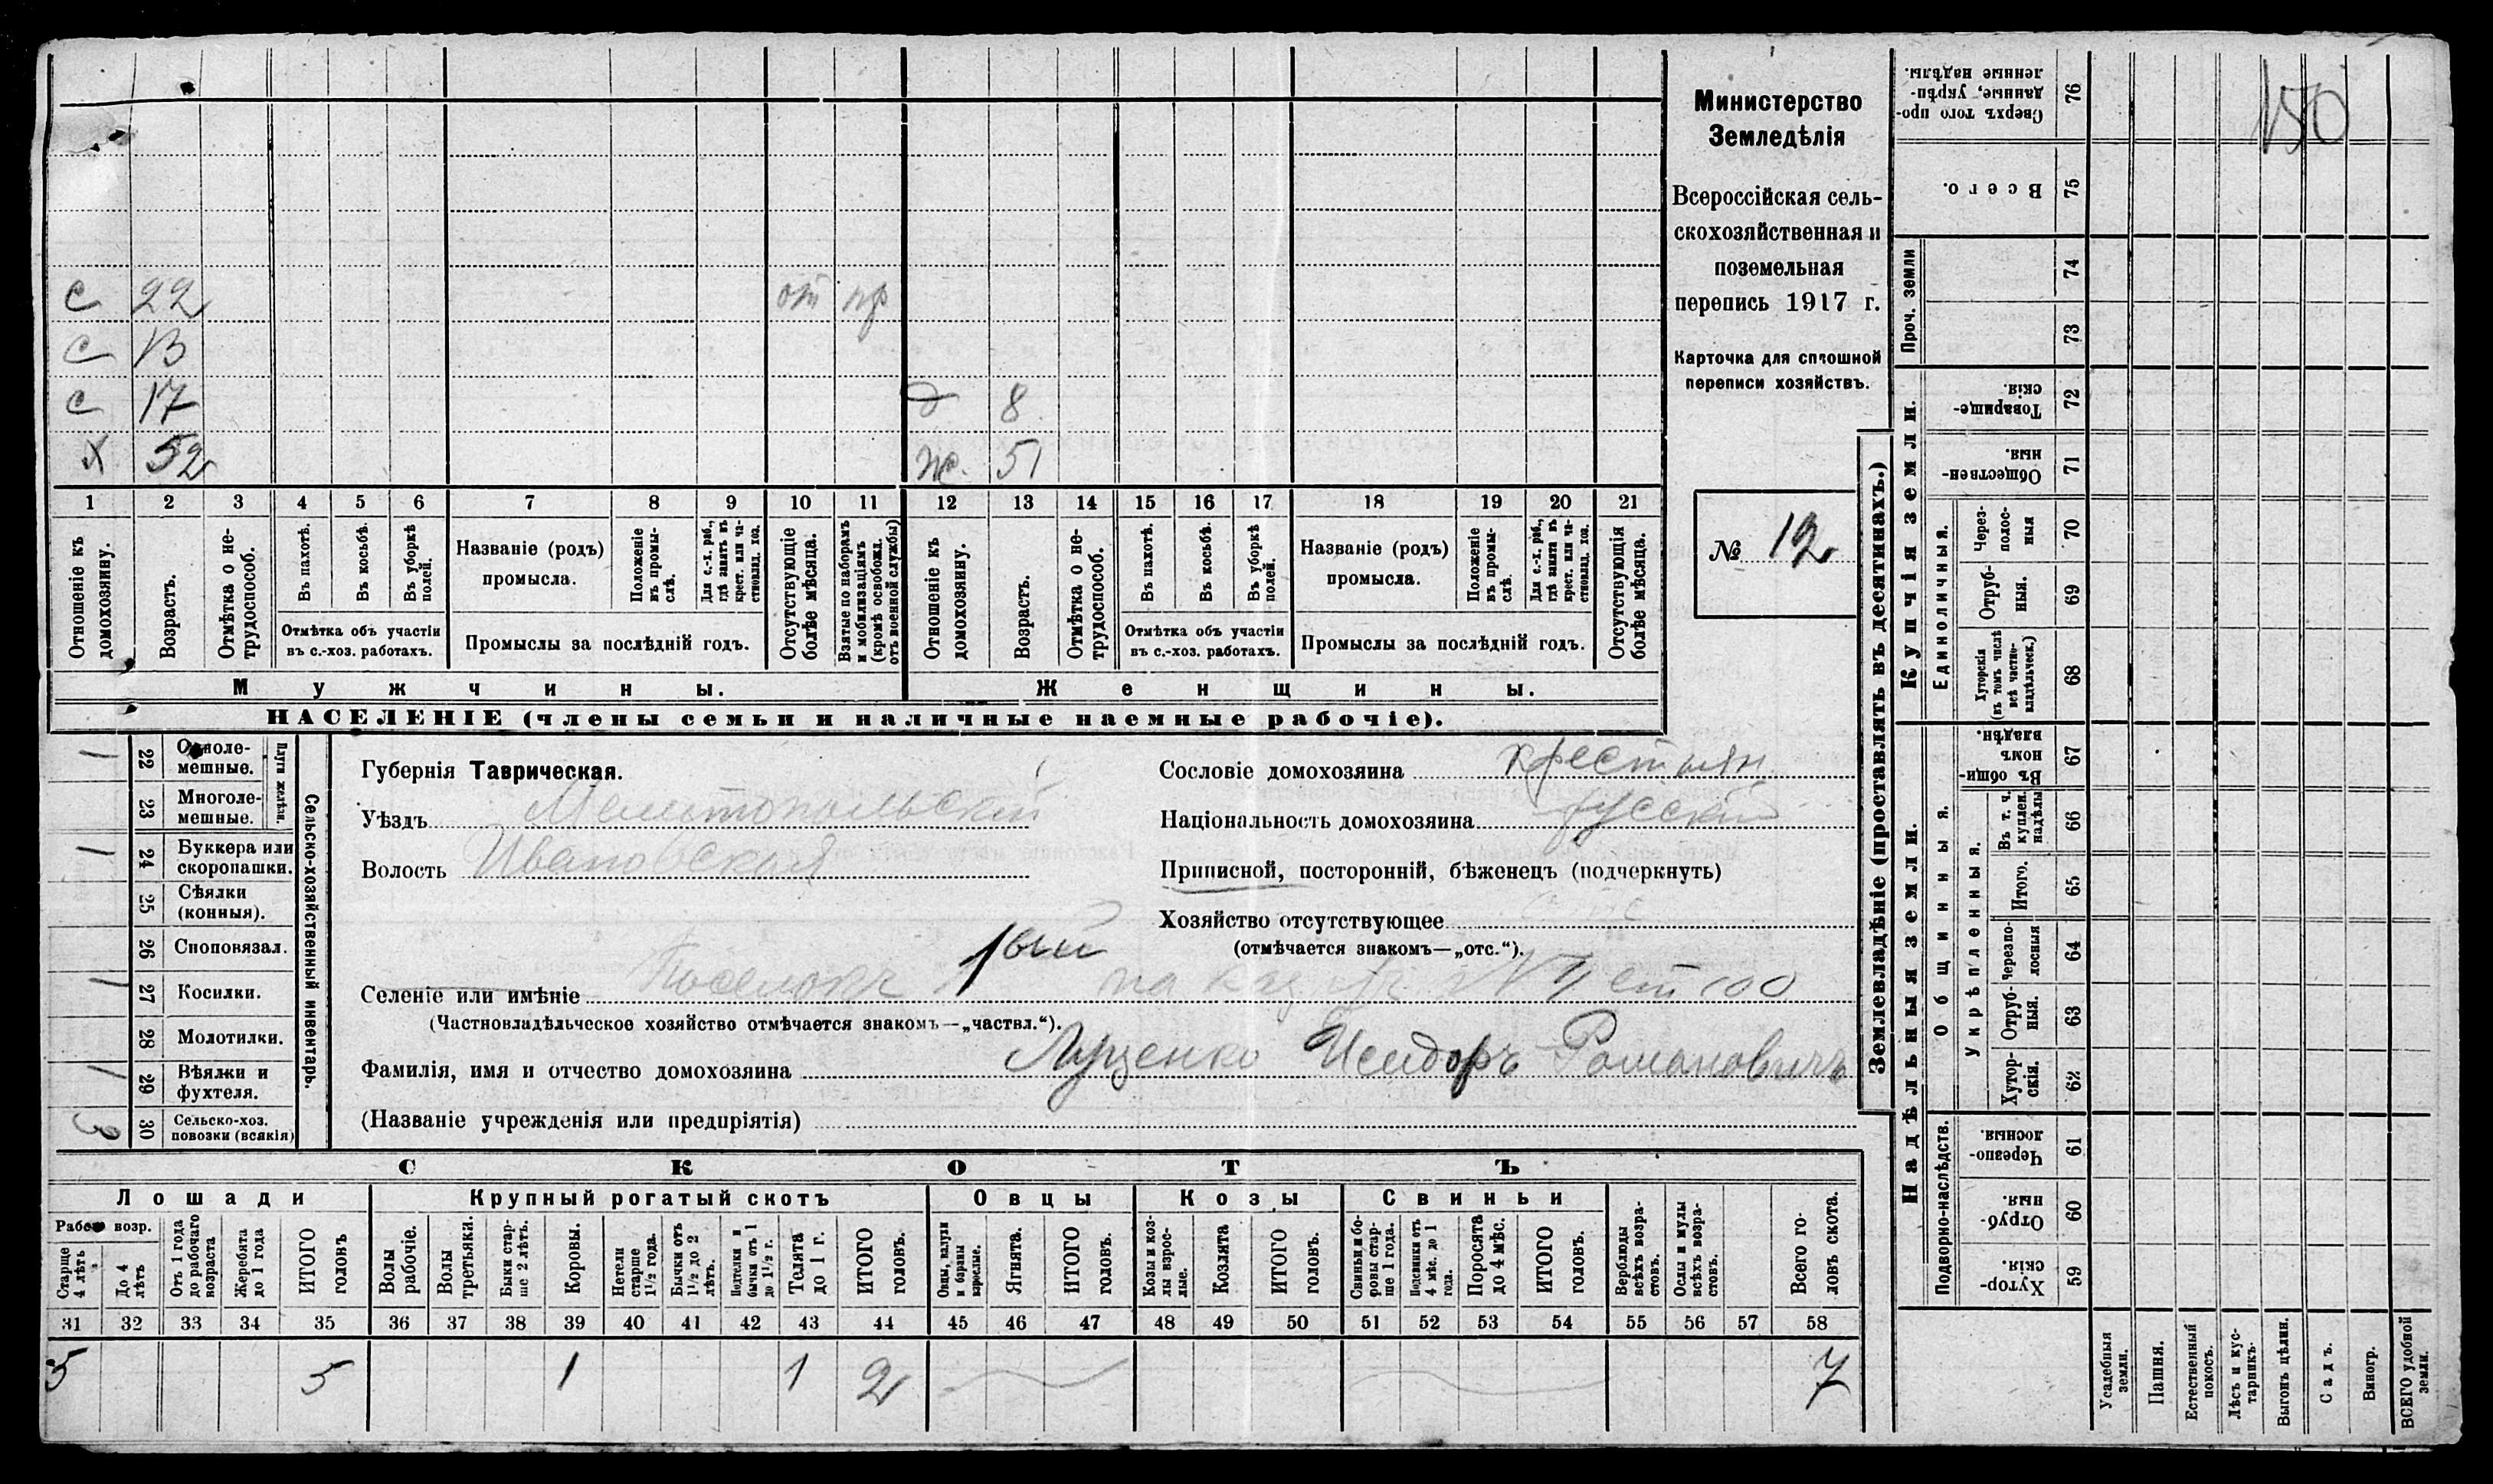 Министерство
Земледѣлія
Всероссійская сель-
скохозяйственная и
поземельная
перепись 1917 г.
Карточка для сплошной
переписи хозяйствъ.
№ 12
с 22 от пр
с 13
с 17 д 8
х 52 ж. 51
1 2 3 4 5 6 7 8 9 10 11 12 13 14 15 16 17 18 19 20 21
Отношеніе къ домохозяину.
Возрастъ.
Отмѣтка о не-трудоспособ.
Въ пахотѣ.
Въ косьбѣ.
Въ уборкѣ полей.
Отмѣтка объ участіи
въ с.-хоз. работахъ.
Названіе (родъ)
промысла.
Положеніе въ промы-слѣ.
Для с.-х. раб., гдѣ занятъ въ крест. или ча-стновлад. хоз.
Промыслы за послѣдній годъ.
Отсутствующіе болѣе мѣсяца.
Взятые по наборамъ и мобилизаціямъ (кромѣ освобожд. отъ военной службы)
Отношеніе къ домохозяину.
Возрастъ.
Отмѣтка о не-трудоспособ.
Въ пахотѣ.
Въ косьбѣ.
Въ уборкѣ полей.
Отмѣтка объ участіи
въ с.-хоз. работахъ.
Названіе (родъ)
промысла.
Положеніе въ промы-слѣ.
Для с.-х. раб., гдѣ занята въ крест. или ча-стновлад. хоз.
Промыслы за послѣдній годъ.
Отсутствующія болѣе мѣсяца.
Мужчины. Женщины.
НАСЕЛЕНІЕ (члены семьи и наличные наемные рабочіе).
Сельско-хозяйственный инвентарь.
Плуги желѣзн.
22 Одноле-мешные.
23 Многоле-мешные.
24 Буккера или скоропашки.
25 Сѣялки (конныя).
26 Сноповязал.
27 Косилки.
28 Молотилки.
29 Вѣялки и фухтеля.
30 Сельско-хоз. повозки (всякія)
1
1
1
1
3
Губернія Таврическая.
Уѣздъ Мелитопольскій
Волость Ивановская
Сословіе домохозяина крестьян
Національность домохозяина русскій
Приписной, посторонній, бѣженецъ (подчеркнуть)
Хозяйство отсутствующее
(отмѣчается знакомъ—„отс.“).
Селеніе или имѣніе Поселокъ 1ый на каз
(Частновладѣльческое хозяйство отмѣчается знакомъ—„частвл.“).
Фамилія, имя и отчество домохозяина Луценко Исидоръ Романовичъ
(Названіе учрежденія или предпріятія)
СКОТЪ
Лошади Крупный рогатый скотъ Овцы Козы Свиньи
Рабоч. возр.
Старше 4 лѣтъ
До 4 лѣтъ
Отъ 1 года до рабочаго возраста
Жеребята до 1 года
ИТОГО головъ
Волы рабочіе.
Волы третьяки.
Быки стар-ше 2 лѣтъ.
Коровы.
Нетели старше 1½ года.
Бычки отъ 1½ до 2 лѣтъ.
Подтелки и бычки отъ 1 до 1½ г.
Телята до 1 г.
ИТОГО головъ.
Овцы, валухи и бараны взрослые.
Ягнята.
ИТОГО головъ.
Козы и коз-лы взрос-лые.
Козлята
ИТОГО головъ.
Свиньи и бо-ровы стар-ше 1 года.
Подсвинки отъ 4 мѣс. до 1 года.
Поросята до 4 мѣс.
ИТОГО головъ.
Верблюды всѣхъ возра-стовъ.
Ослы и мулы всѣхъ возра-стовъ.
Всего го-ловъ скота.
31 32 33 34 35 36 37 38 39 40 41 42 43 44 45 46 47 48 49 50 51 52 53 54 55 56 57 58
5 5 1 1 2 7
Землевладѣніе (проставлять въ десятинахъ.)
Сверхъ того про-данные, укрѣп-ленные надѣлы. 76
150
Всего. 75
Проч. земли 74
73
Купчія земли.
Товарище-скія. 72
Обществен-ныя. 71
Единоличныя.
Через-полос-ныя 70
Отруб-ныя. 69
Хуторскія (въ томъ числѣ всѣ частно-владѣльческ.) 68
Надѣльныя земли.
Общинныя.
Въ общин-номъ владѣн. 67
Укрѣпленныя.
Въ т. ч. куплен. надѣлы 66
Итого. 65
Черезпо-лосныя 64
Отруб-ныя. 63
Хутор-скія. 62
Подворно-наслѣдств.
Черезпо-лосныя. 61
Отруб-ныя. 60
Хутор-скія. 59
Усадебныя земли.
Пашня.
Естественный покосъ.
Лѣсъ и кус-тарникъ.
Выгонъ цѣлин.
Садъ.
Виногр.
ВСЕГО удобной земли.